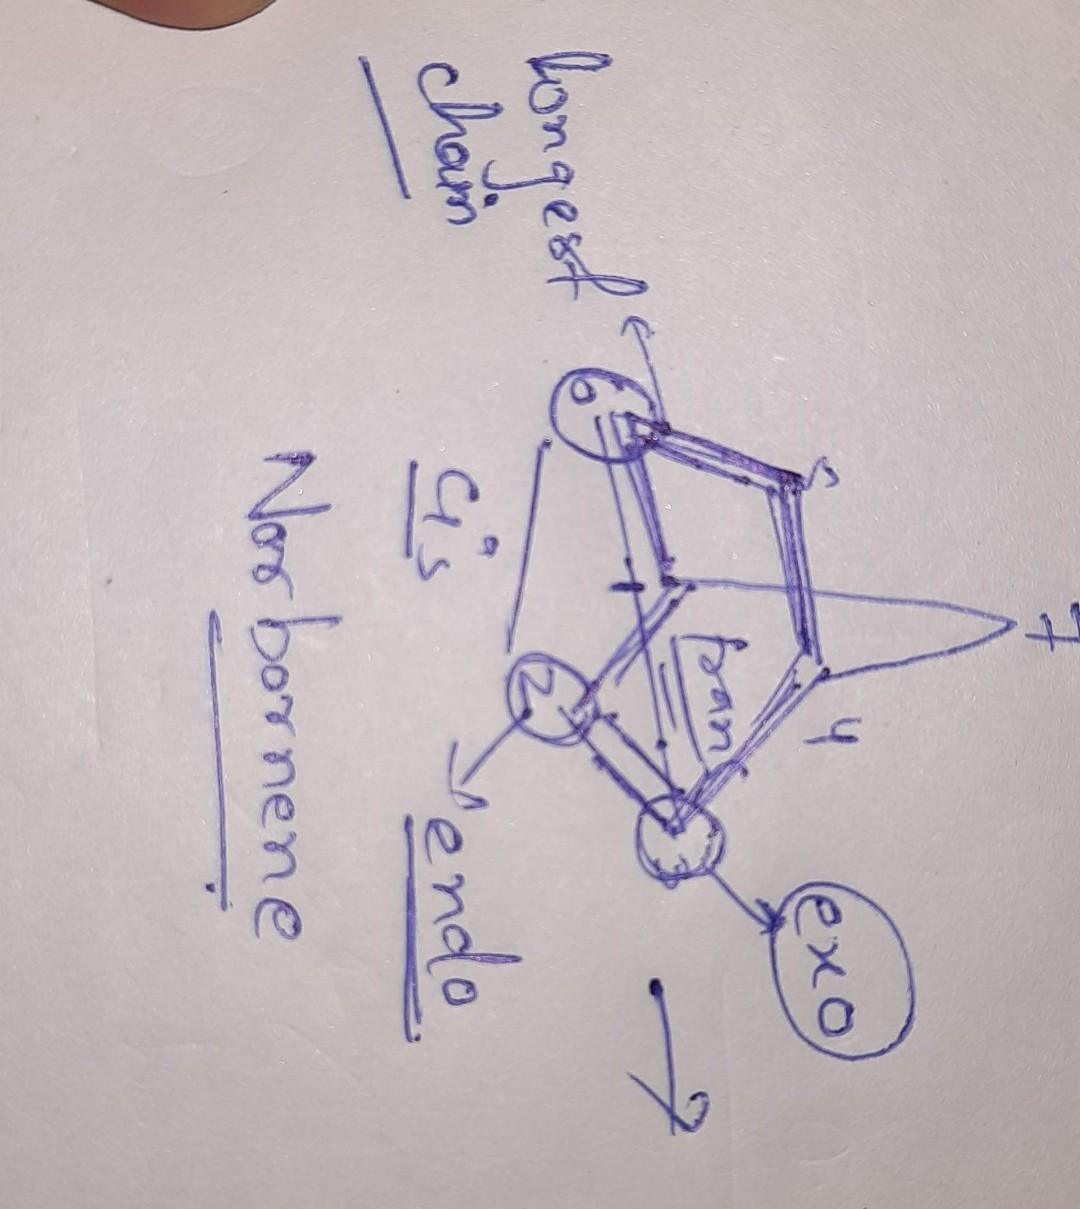 7
exo
5
4
tran
1
6
2
longest
chain
cis
endo
Norbornene